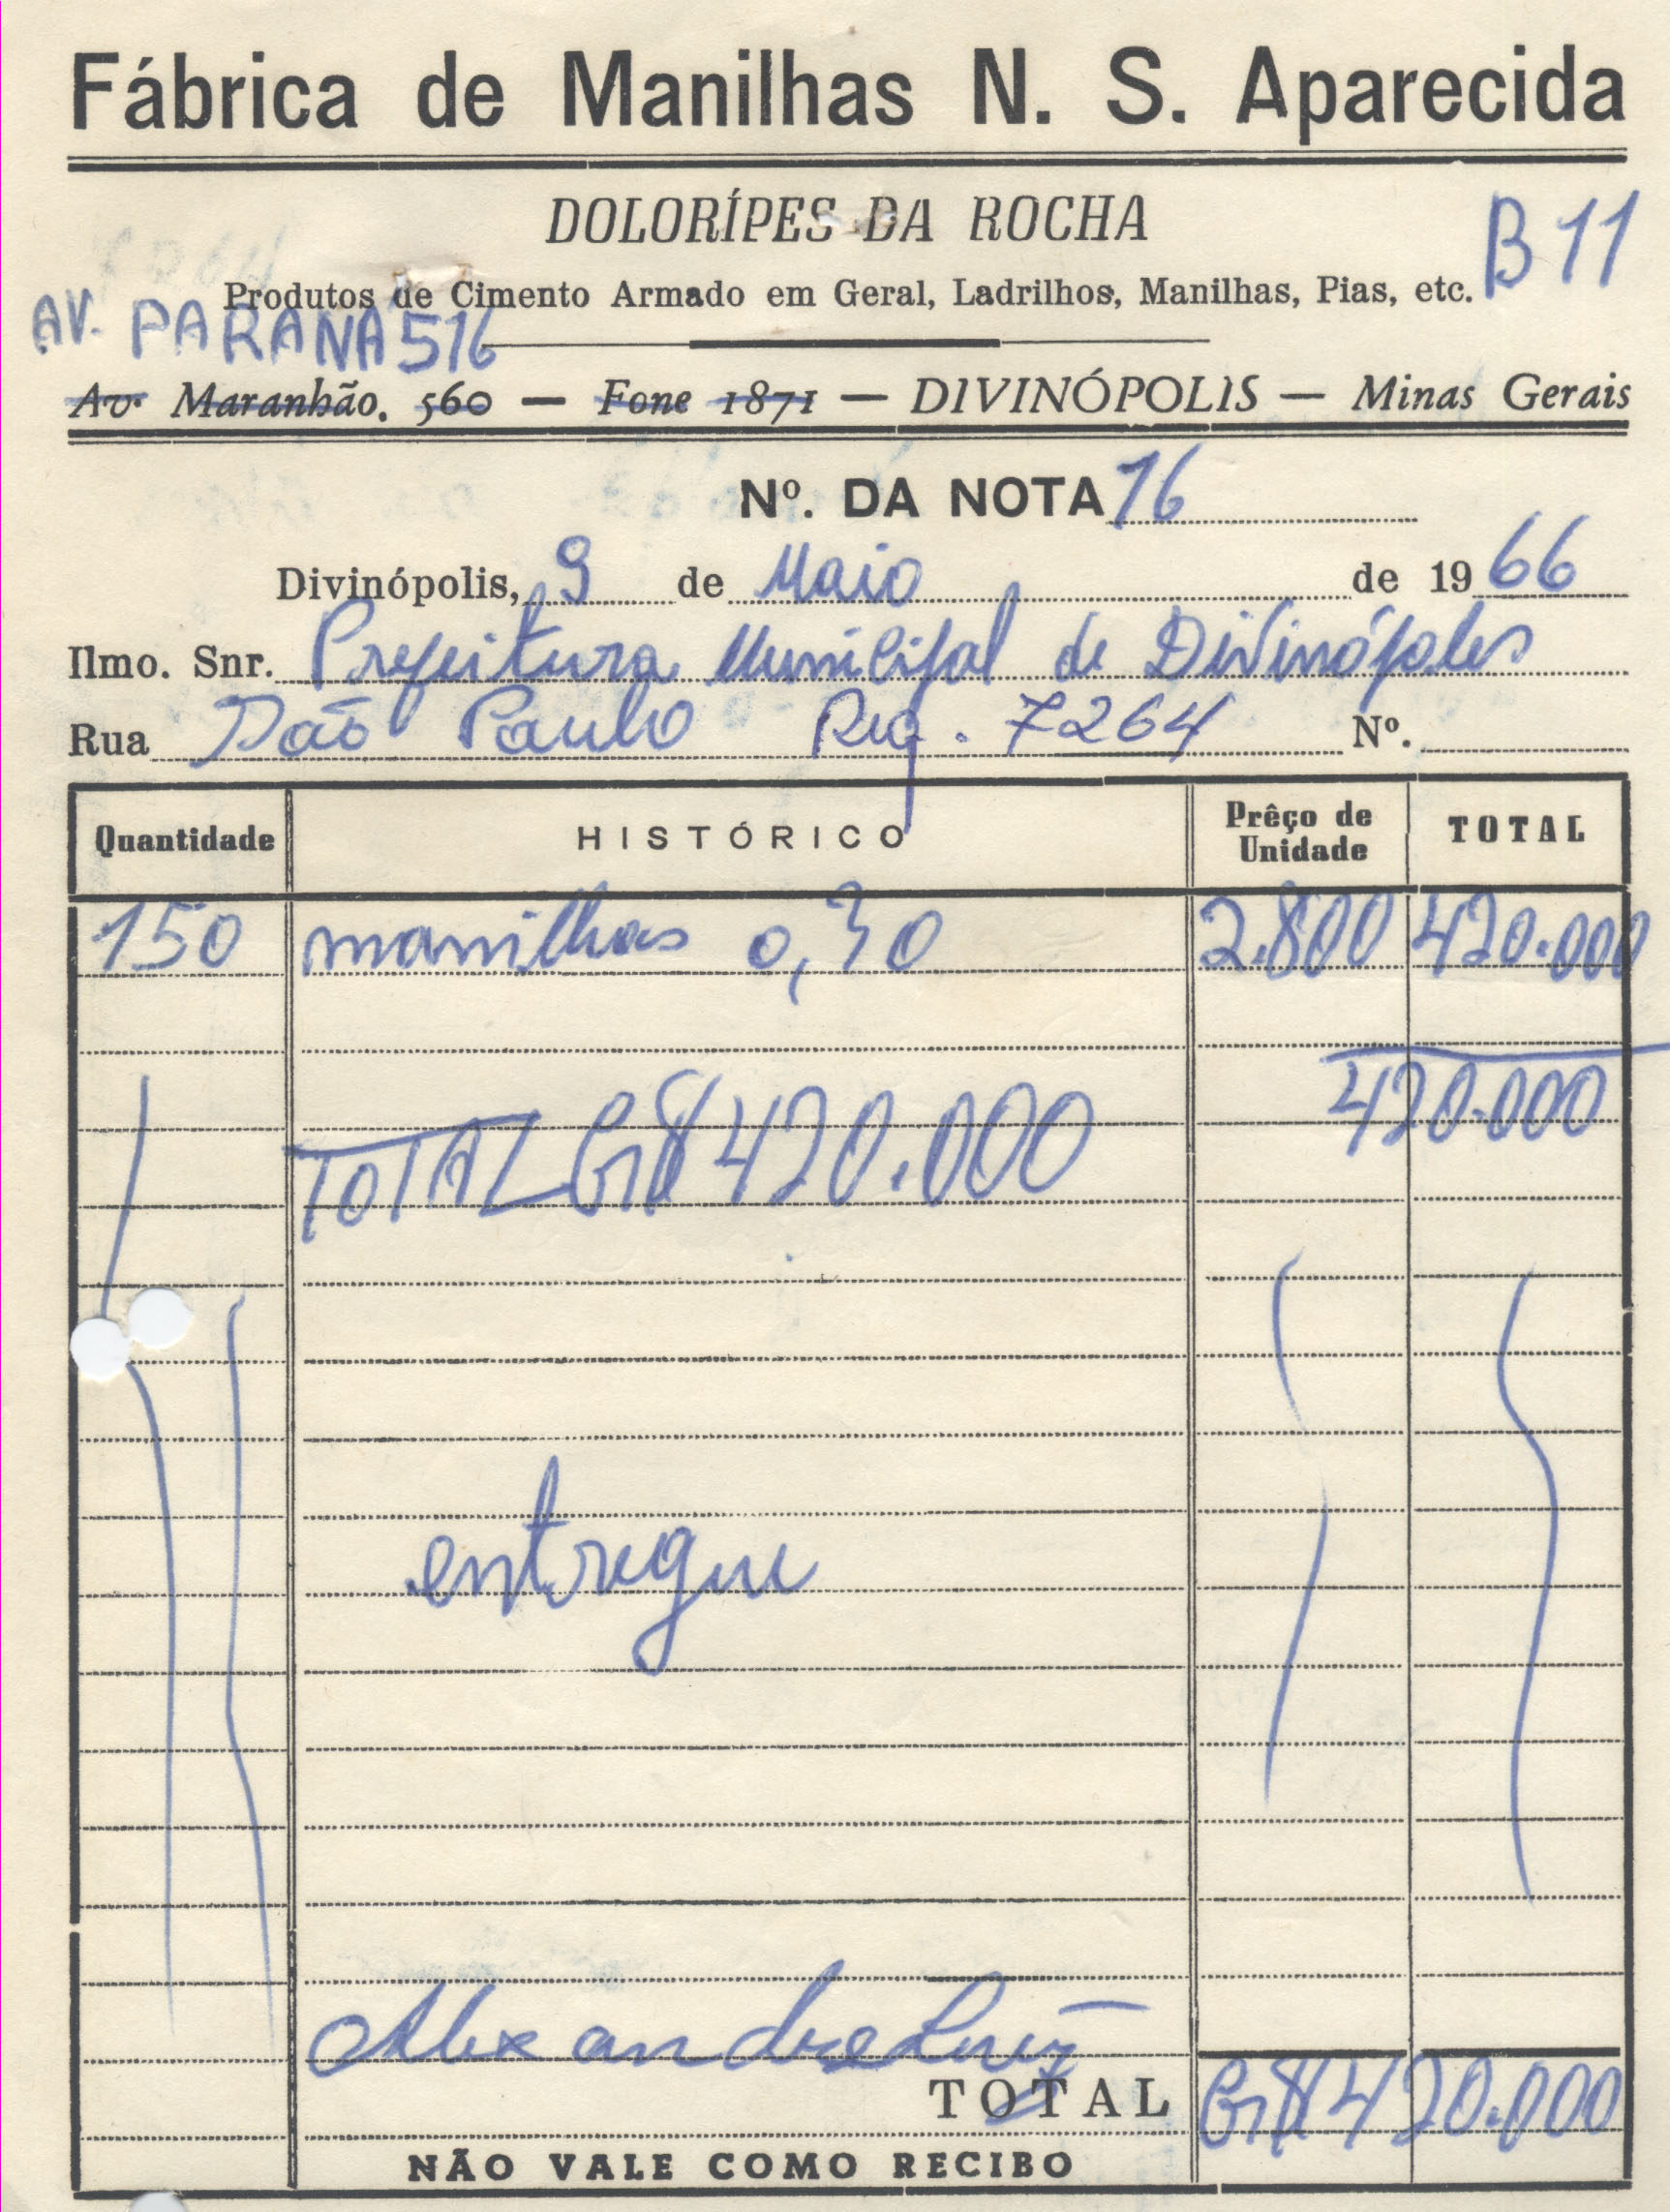 Fábrica de Manilhas N. S. Aparecida
DOLORÍPES DA ROCHA
B 11
Produtos de Cimento Armado em Geral, Ladrilhos, Manilhas, Pias, etc.
AV. PARANÁ 516
Av. Maranhão, 560 — Fone 1871 — DIVINÓPOLIS — Minas Gerais
Nº. DA NOTA 16
Divinópolis, 9 de Maio de 1966
Ilmo. Snr. Prefeitura Municipal de Divinópoles
Rua São Paulo Req. 7264 Nº.
Quantidade HISTÓRICO Prêço de Unidade TOTAL
150 manilhas 0,30 2.800 420.000
420.000
TOTAL Cr$ 420.000
entregue
Alexandre Luiz
TOTAL Cr$ 420.000
NÃO VALE COMO RECIBO